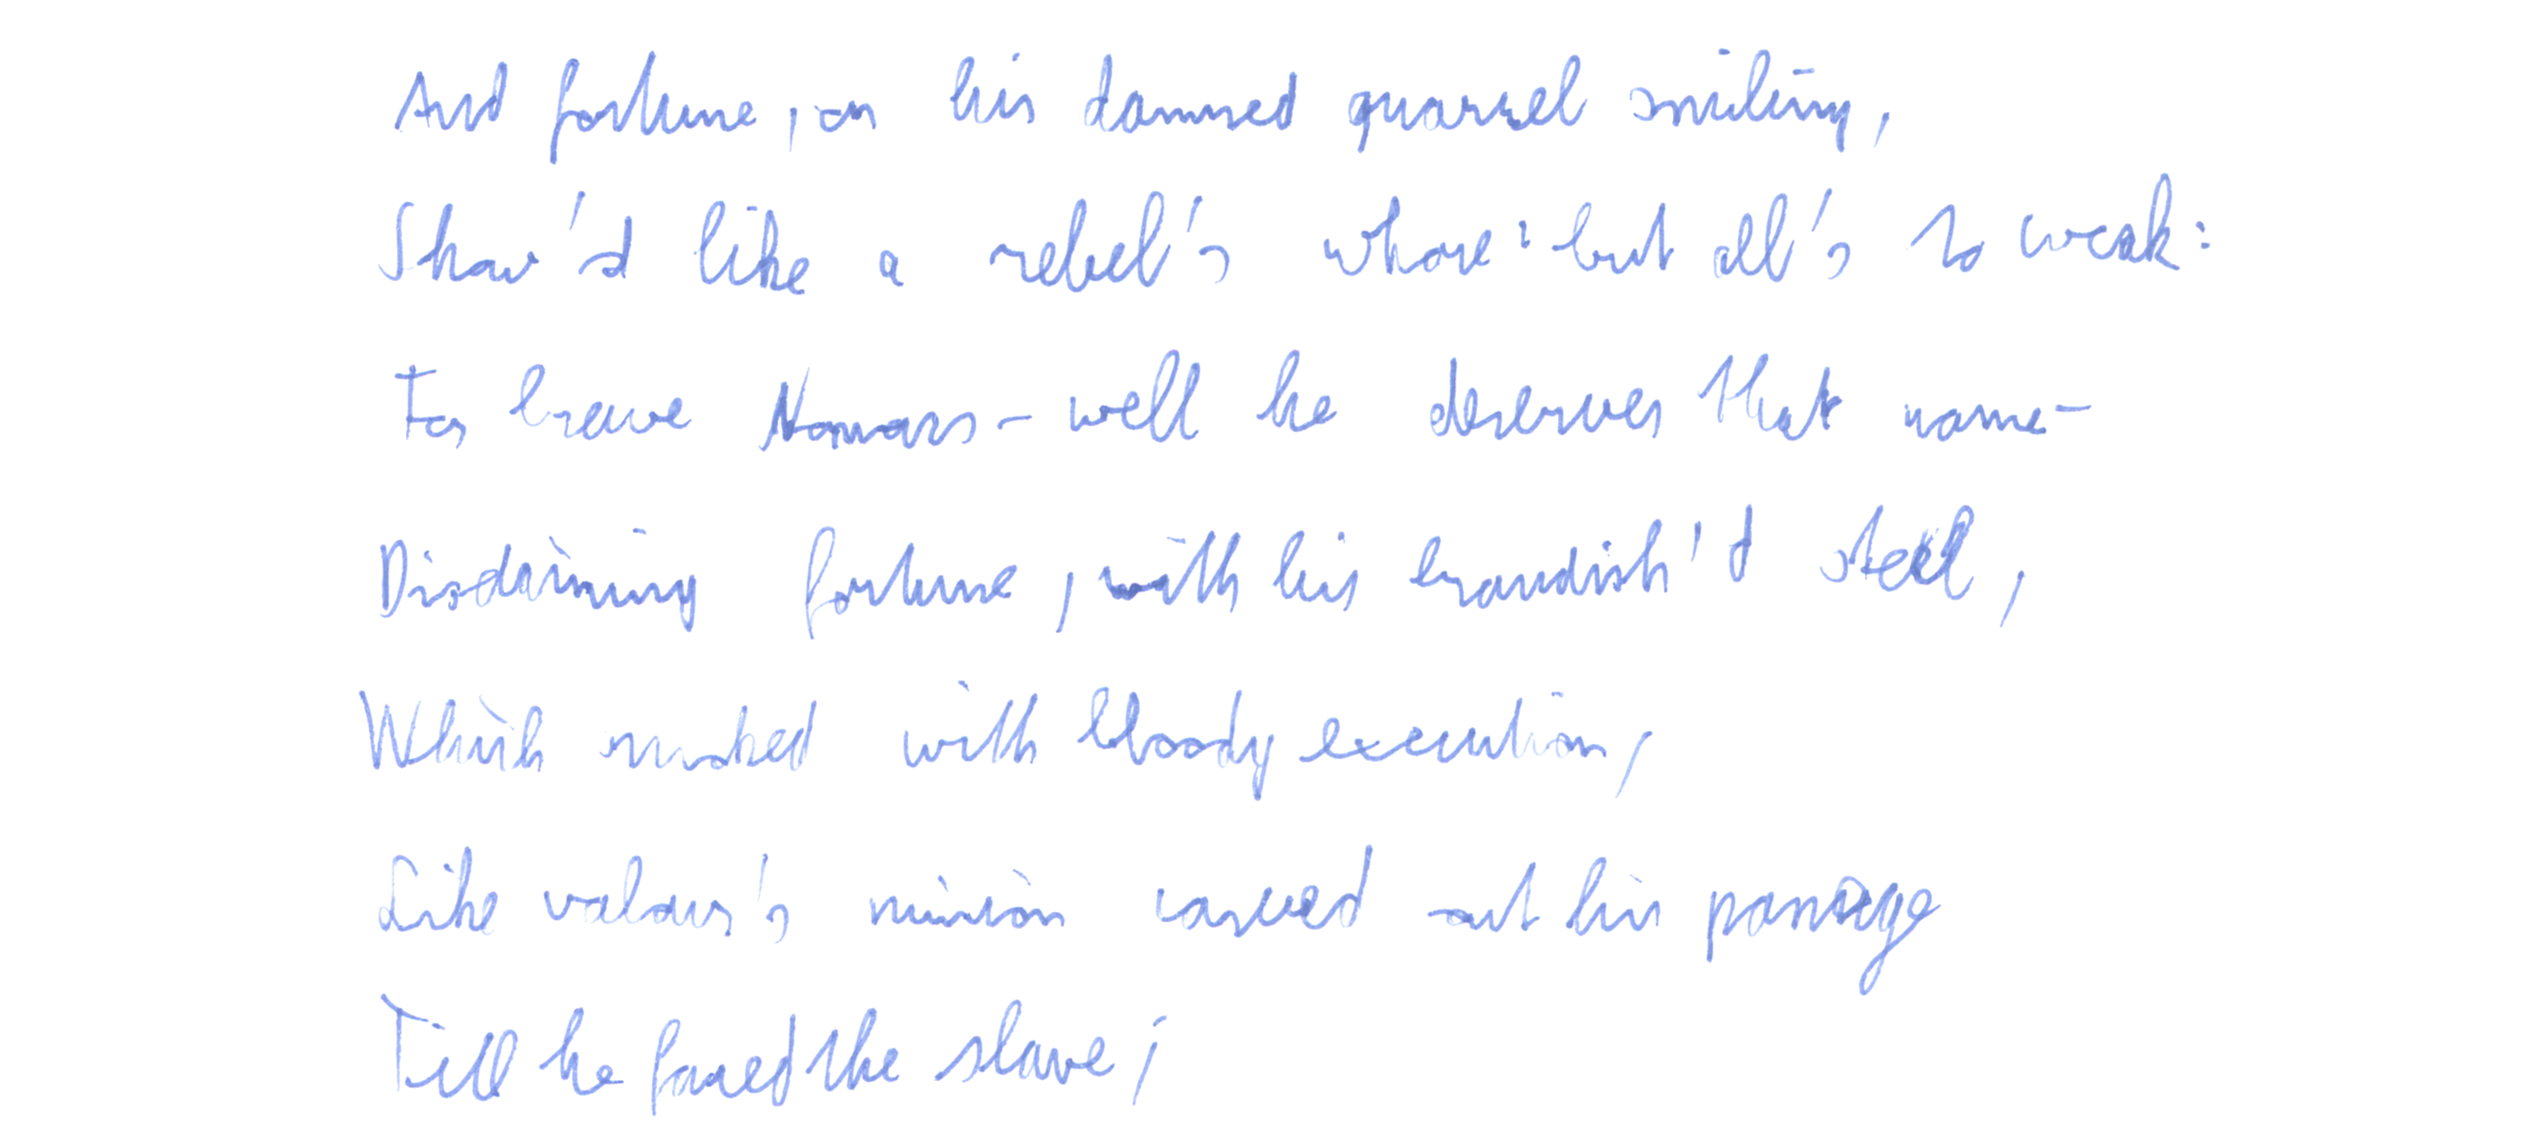 And fortune, on his damned quarrel smiling,
Show'd like a rebel's whore: but all's to weak:
For brave - well he deserves that name-
Disdaining fortune, with his brandish'd steel,
Which smoked with bloody execution,
Like valour's minion carved out his passage
Till he faced the slave;